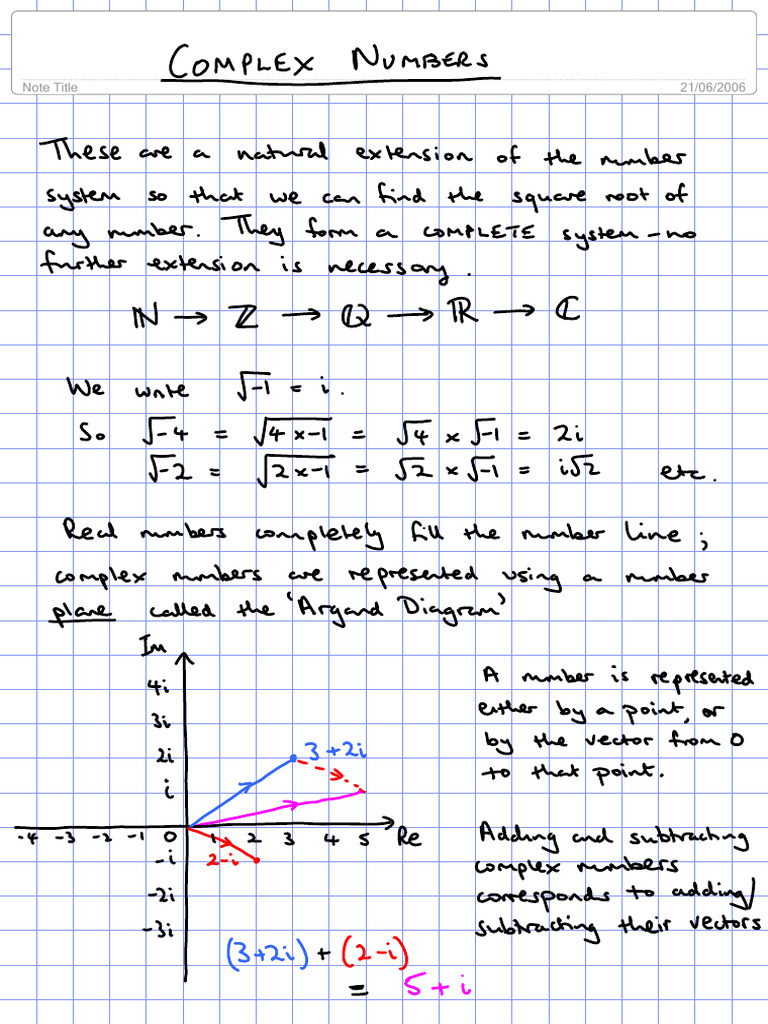 COMPLEX NUMBERS
Note Title
21/06/2006
These are a natural extension of the number
system so that we can find the square root of
any number. They form a COMPLETE system - no
further extension is necessary.
ℕ → ℤ → ℚ → ℝ → ℂ
We write √-1 = i.
So √-4 = √4×-1 = √4 × √-1 = 2i
√-2 = √2×-1 = √2 × √-1 = i√2 etc.
Real numbers completely fill the number line;
complex numbers are represented using a number
plane called the 'Argand Diagram'
Im
4i
3i
2i
i
3+2i
-4 -3 -2 -1 0 1 2 3 4 5 Re
-i
2-i
-2i
-3i
(3+2i) + (2-i)
= 5+i
A number is represented
either by a point, or
by the vector from 0
to that point.
Adding and subtracting
complex numbers
corresponds to adding/
subtracting their vectors